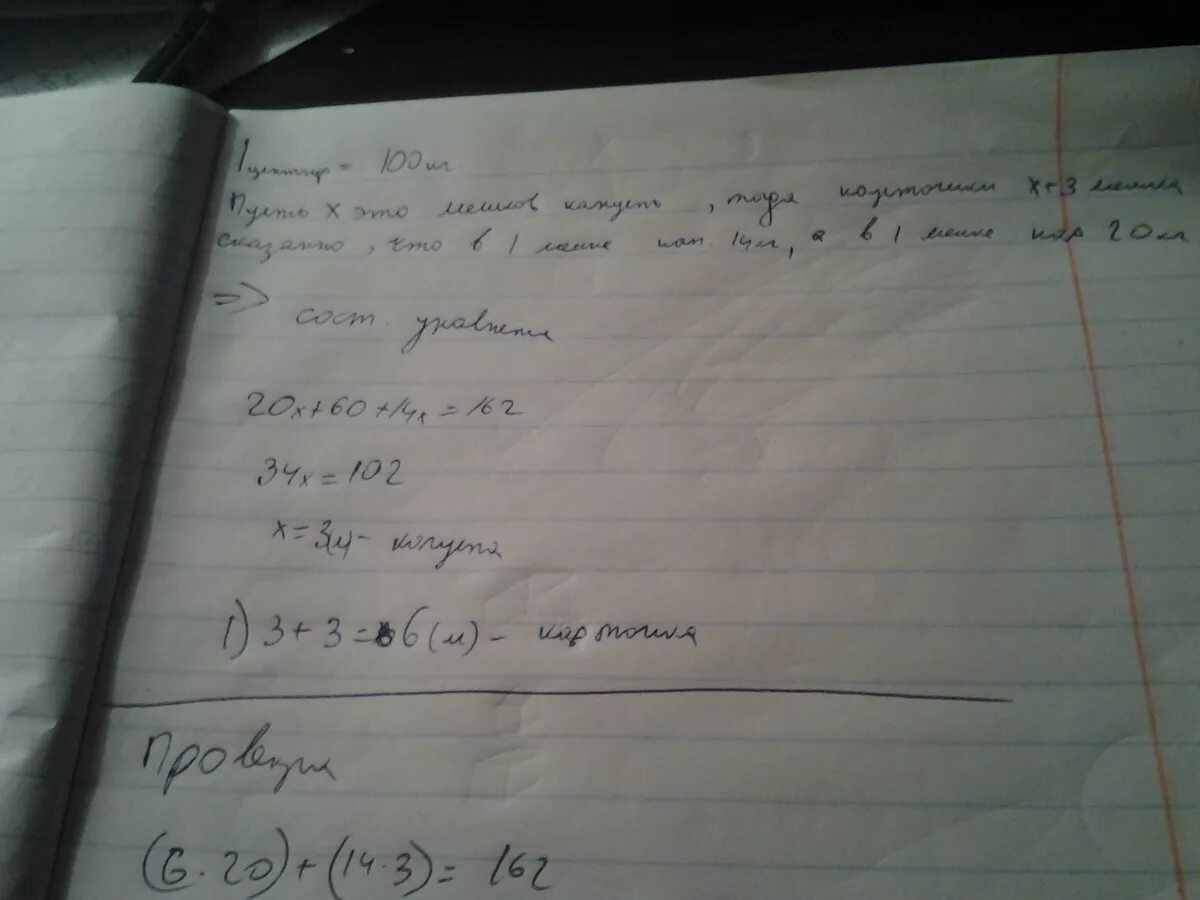 1 центнер = 100 кг.
Пусть х это мешков капусты, тогда картошки х+3 мешка
сказанно, что в 1 мешке кап. 14кг, а в 1 мешке кар 20кг
=> сост. уравнение
20х+60+14х=162
34х=102
х=3(м)- капуста
1) 3+3=6(м) - картошка
Проверка
(6·20)+(14·3)=162